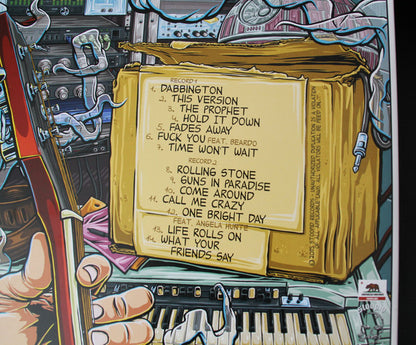 RECORD 1
1. DABBINGTON
2. THIS VERSION
3. THE PROPHET
4. HOLD IT DOWN
5. FADES AWAY
6. FUCK YOU FEAT. BEARDO
7. TIME WON'T WAIT
RECORD 2
8. ROLLING STONE
9. GUNS IN PARADISE
10. COME AROUND
11. CALL ME CRAZY
12. ONE BRIGHT DAY
FEAT. ANGELA HUNTE
13. LIFE ROLLS ON
14. WHAT YOUR
FRIENDS SAY
©2015 STOOPID RECORDS - UNAUTHORIZED DUPLICATION IS A VIOLATION
OF APPLICABLE LAWS. ALL VIOLATORS WILL BE